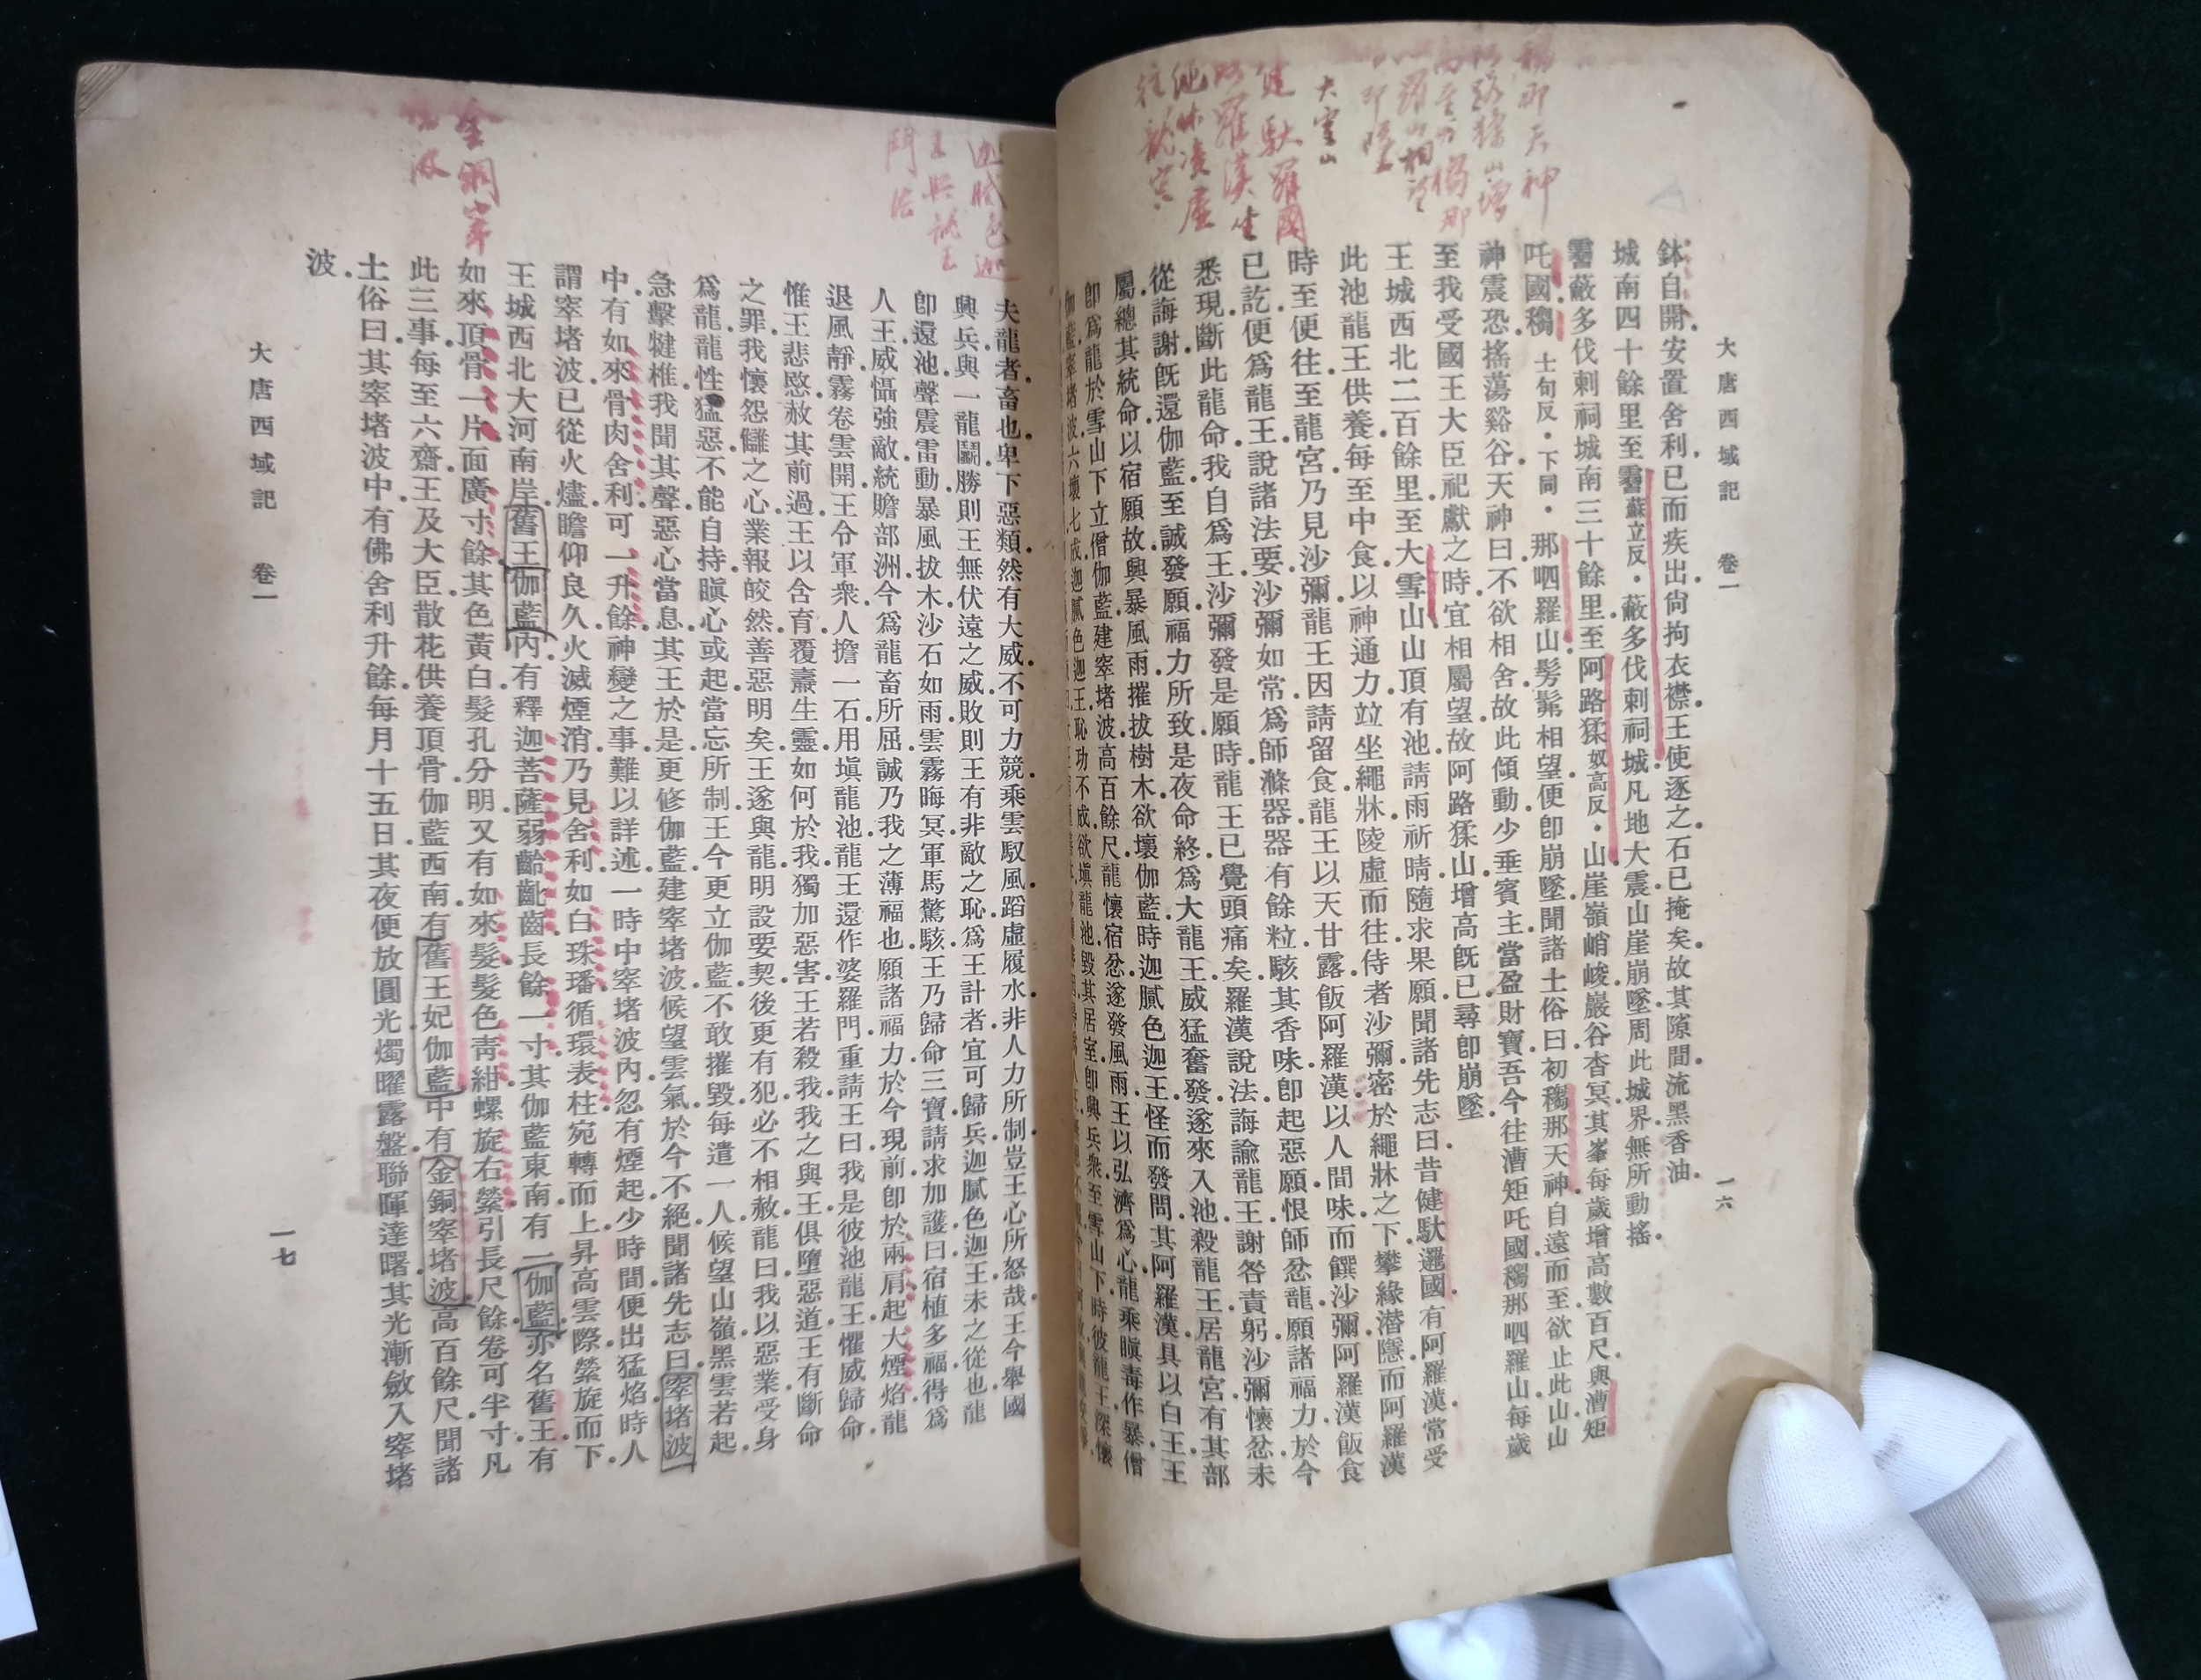 大唐西域記 卷一 一六
鉢自開.安置舍利.已而疾出尙拘衣襟.王使逐之.石已掩矣.故其隙間流黑香油.
城南四十餘里至霫蘇立反.蔽多伐剌祠城.凡地大震.山崖崩墜.周此城界無所動搖.
霫蔽多伐剌祠城南三十餘里.至阿路猱奴高反.山.崖嶺峭峻.巖谷杳冥.其峯每歲增高數百尺.與漕矩
吒國䅳士句反.下同.那呬羅山髣髴相望.便卽崩墜.聞諸土俗曰.初䅳那天神自遠而至.欲止此山.山
神震恐.搖蕩谿谷.天神曰.不欲相舍.故此傾動.少垂賓主.當盈財寶.吾今往漕矩吒國䅳那呬羅山.每歲
至我受國王大臣祀獻之時.宜相屬望.故阿路猱山增高旣已.尋卽崩墜.
王城西北二百餘里至大雪山.山頂有池.請雨祈晴.隨求果願.聞諸先志曰.昔健馱邏國有阿羅漢.常受
此池龍王供養.每至中食.以神通力.竝坐繩牀.陵虛而往.侍者沙彌密於繩牀之下.攀緣潛隱.而阿羅漢
時至便往.至龍宮乃見沙彌.龍王因請留食.龍王以天甘露飯阿羅漢.以人間味而饌沙彌.阿羅漢飯食
已訖.便爲龍王說諸法要.沙彌如常爲師滌器.器有餘粒.駭其香味.卽起惡願.恨師忿龍.願諸福力.於今
悉現.斷此龍命.我自爲王.沙彌發是願時.龍王已覺頭痛矣.羅漢說法誨諭.龍王謝咎責躬.沙彌懷忿.未
從誨謝.旣還伽藍.至誠發願.福力所致.是夜命終.爲大龍王.威猛奮發.遂來入池.殺龍王.居龍宮.有其部
屬.總其統命.以宿願故.興暴風雨.摧拔樹木.欲壞伽藍.時迦膩色迦王怪而發問.其阿羅漢具以白王.王
卽爲龍於雪山下立僧伽藍.建窣堵波.高百餘尺.龍懷宿忿.遂發風雨.王以弘濟爲心.龍乘瞋毒作暴.僧
伽藍窣堵波六壞七成.迦膩色迦王恥功不成.欲塡龍池.毀其居室.卽興兵衆.至雪山下.時彼龍王深懷
夫龍者畜也.卑下惡類.然有大威.不可力競.乘雲馭風.蹈虛履水.非人力所制.豈王心所怒哉.王今舉國
興兵.與一龍鬭.勝則王無伏遠之威.敗則王有非敵之恥.爲王計者.宜可歸兵.迦膩色迦王未之從也.龍
卽還池.聲震雷動.暴風拔木.沙石如雨.雲霧晦冥.軍馬驚駭.王乃歸命三寶.請求加護.曰.宿植多福.得爲
人王.威懾強敵.統贍部洲.今爲龍畜所屈.誠乃我之薄福也.願諸福力.於今現前.卽於兩肩起大煙焰.龍
退風靜.霧卷雲開.王令軍衆.人擔一石.用塡龍池.龍王還作婆羅門.重請王曰.我是彼池龍王.懼威歸命.
惟王悲愍.赦其前過.王以含育.覆燾生靈.如何於我.獨加惡害.王若殺我.我之與王.俱墮惡道.王有斷命
之罪.我懷怨讎之心.業報皎然.善惡明矣.王遂與龍明設要契.後更有犯.必不相赦.龍曰.我以惡業.受身
爲龍.龍性猛惡.不能自持.瞋心或起.當忘所制.王今更立伽藍.不敢摧毀.每遣一人候望山嶺.黑雲若起.
急擊犍椎.我聞其聲.惡心當息.其王於是更修伽藍.建窣堵波.候望雲氣.於今不絕.聞諸先志曰.窣堵波
中有如來骨肉舍利.可一升餘.神變之事.難以詳述.一時中窣堵波內忽有煙起.少時間便出猛焰.時人
謂窣堵波已從火燼.瞻仰良久.火滅煙消.乃見舍利如白珠璠.循環表柱.宛轉而上.昇高雲際.縈旋而下.
王城西北大河南岸舊王伽藍.內有釋迦菩薩弱齡齔齒.長餘一寸.其伽藍東南有一伽藍.亦名舊王.有
如來頂骨一片.面廣寸餘.其色黃白.髮孔分明.又有如來髮.髮色靑紺.螺旋右縈.引長尺餘.卷可半寸.凡
此三事.每至六齋.王及大臣散花供養.頂骨伽藍西南有舊王妃伽藍.中有金銅窣堵波.高百餘尺.聞諸
土俗曰.其窣堵波中有佛舍利升餘.每月十五日.其夜便放圓光.燭曜露盤.聯暉達曙.其光漸斂.入窣堵
波.
大唐西域記 卷一 一七
大雪山
健馱羅國
阿羅漢坐
繩牀凌虛
往龍宮
迦膩色迦
王與龍王
鬥法
金銅窣
堵波